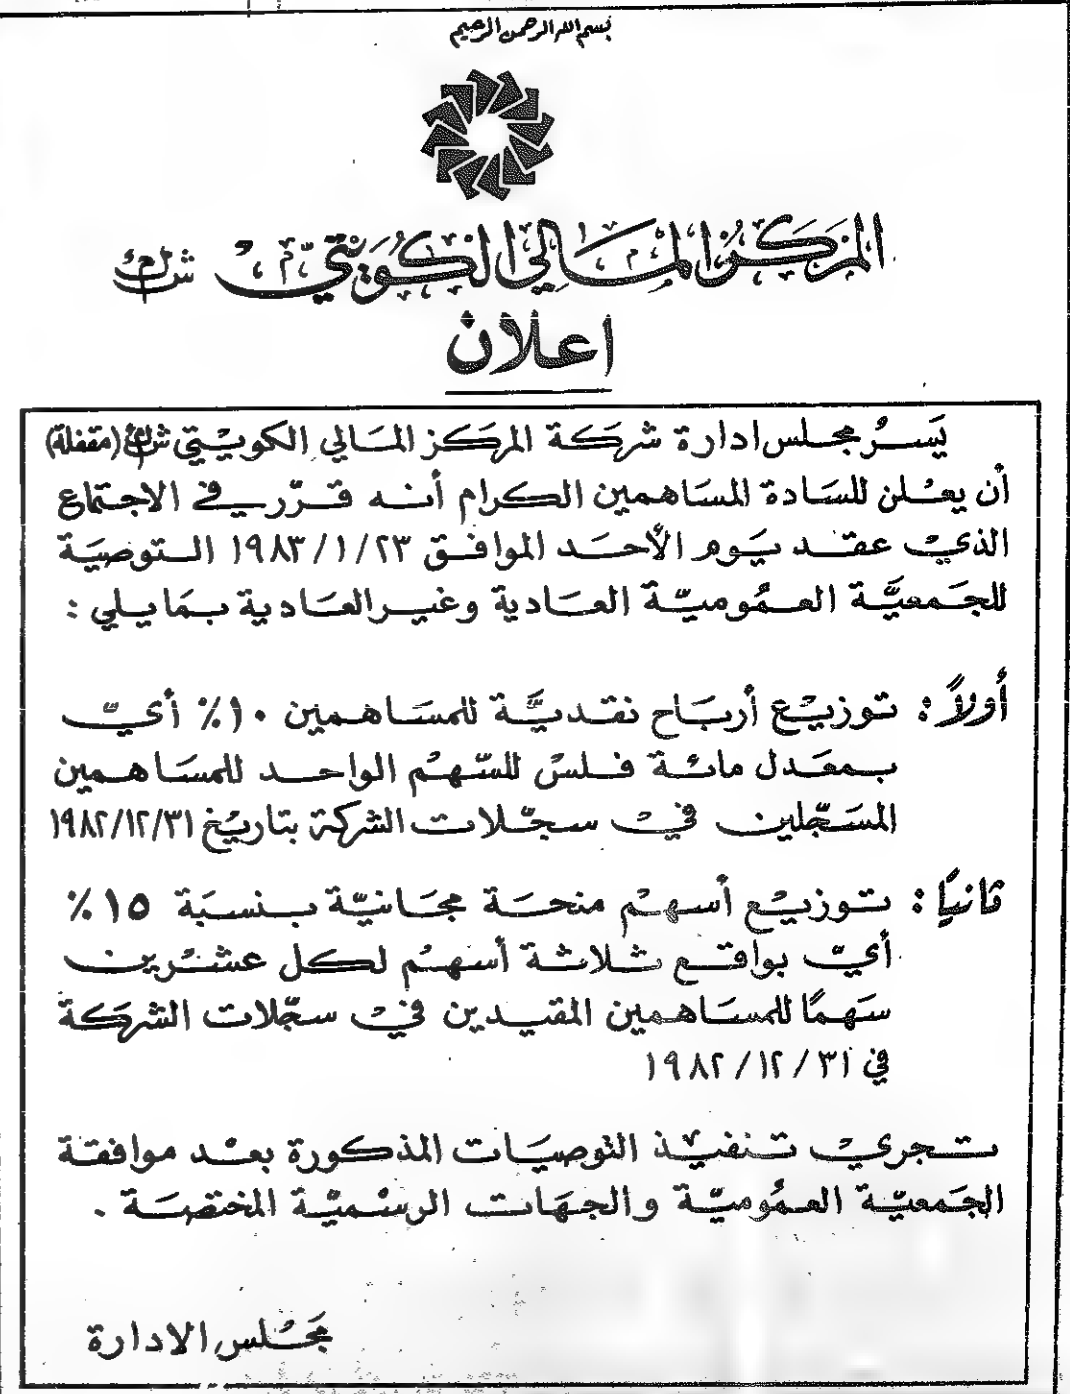 بسم الله الرحمن الرحيم
المركز المالي الكويتي ش.م.ك
اعلان
يسر مجلس ادارة شركة المركز المالي الكويتي ش.م.ك (مقفلة)
أن يعلن للسادة المساهمين الكرام أنه قرّر في الاجتماع
الذي عقد يوم الأحد الموافق ١٩٨٣/١/٢٣ التوصية
للجمعيّة العموميّة العادية وغير العادية بما يلي :
أولاً : توزيع أرباح نقديّة للمساهمين ١٠٪ أيّ
بمعدل مائة فلس للسّهم الواحد للمساهمين
المسَجّلين في سجّلات الشركة بتاريخ ١٩٨٢/١٢/٣١
ثانيًا : توزيع أسهم منحة مجانيّة بنسبة ١٥٪
أيّ بواقع ثلاثة أسهم لكل عشرين
سهمًا للمساهمين المقيدين في سجّلات الشركة
في ١٩٨٢/١٢/٣١
تجري تنفيذ التوصيات المذكورة بعد موافقة
الجمعيّة العموميّة والجهات الرسميّة المختصة .
مجلس الادارة